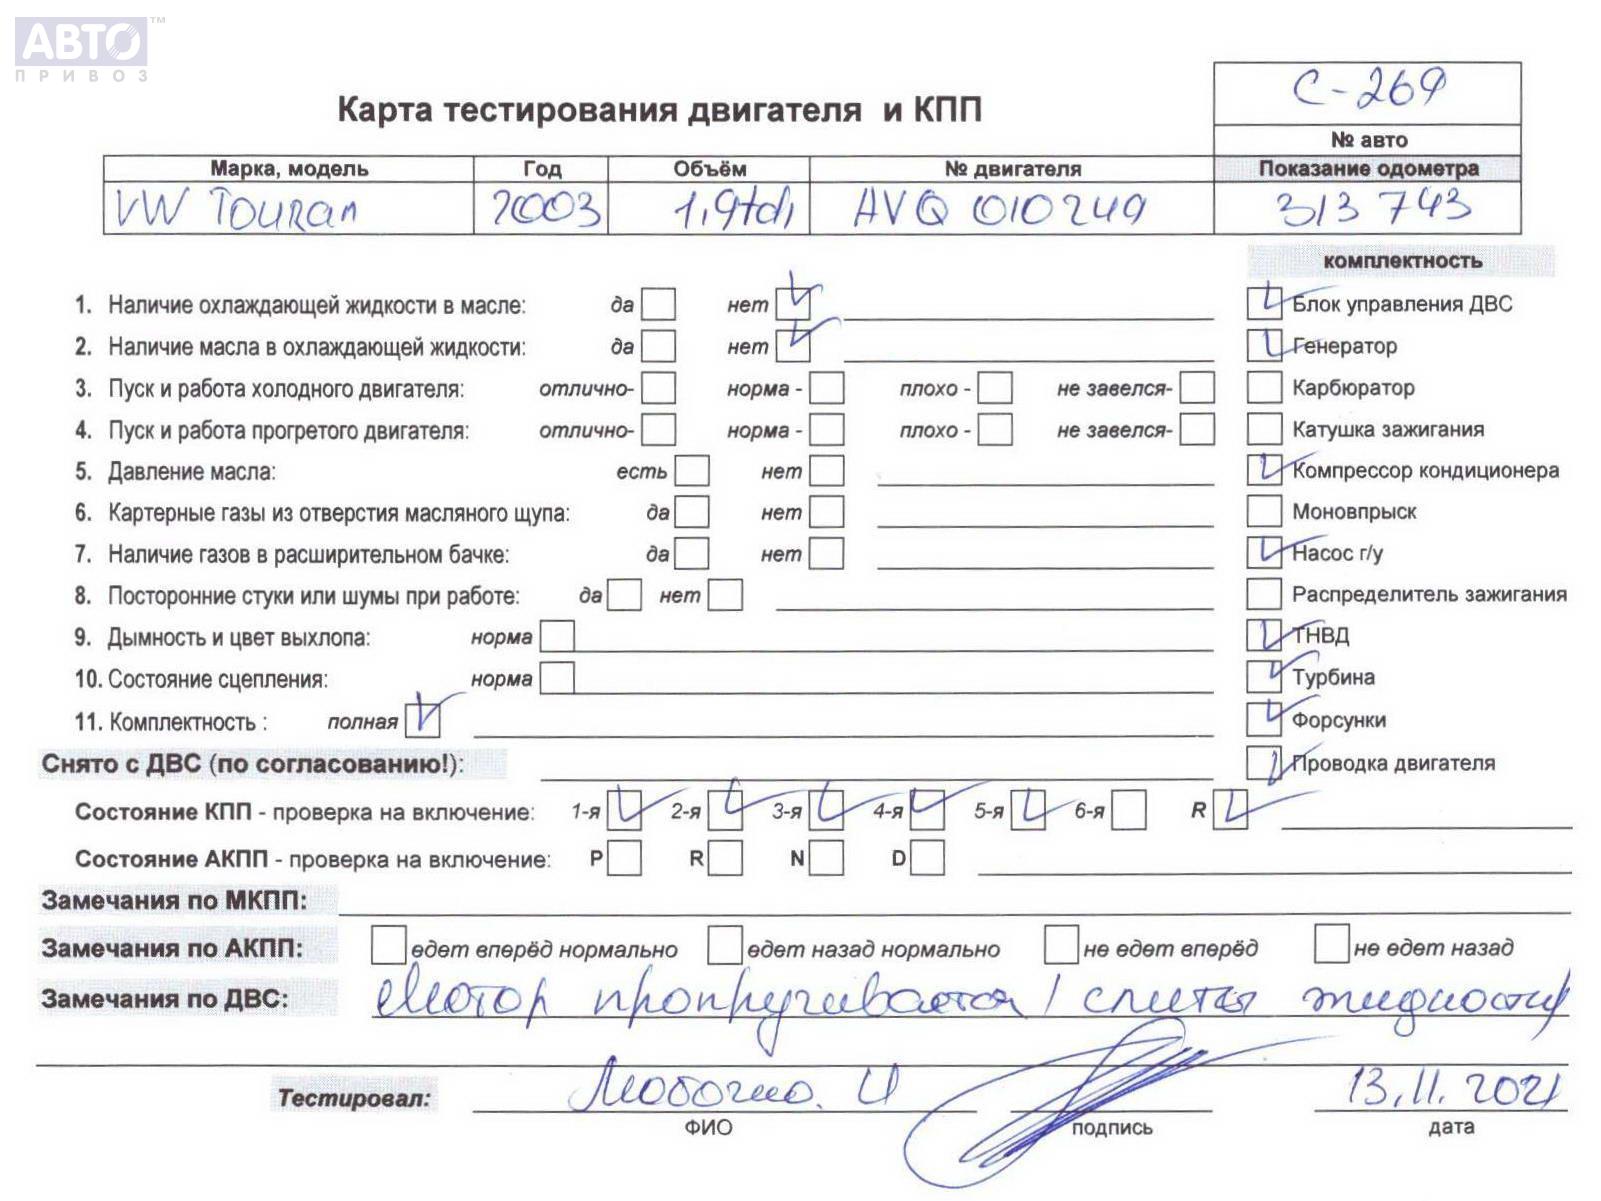 АВТО™
ПРИВОЗ
С-269
Карта тестирования двигателя и КПП
№ авто
Марка, модель Год Объём № двигателя Показание одометра
VW Touran 2003 1,9tdi AVQ 010249 313 743
комплектность
1. Наличие охлаждающей жидкости в масле: да нет Блок управления ДВС
2. Наличие масла в охлаждающей жидкости: да нет Генератор
3. Пуск и работа холодного двигателя: отлично- норма - плохо - не завелся- Карбюратор
4. Пуск и работа прогретого двигателя: отлично- норма - плохо - не завелся- Катушка зажигания
5. Давление масла: есть нет Компрессор кондиционера
6. Картерные газы из отверстия масляного щупа: да нет Моновпрыск
7. Наличие газов в расширительном бачке: да нет Насос г/у
8. Посторонние стуки или шумы при работе: да нет Распределитель зажигания
9. Дымность и цвет выхлопа: норма ТНВД
10. Состояние сцепления: норма Турбина
11. Комплектность : полная Форсунки
Снято с ДВС (по согласованию!): Проводка двигателя
Состояние КПП - проверка на включение: 1-я 2-я 3-я 4-я 5-я 6-я R
Состояние АКПП - проверка на включение: P R N D
Замечания по МКПП:
Замечания по АКПП: едет вперёд нормально едет назад нормально не едет вперёд не едет назад
Замечания по ДВС: Мотор прокручивается / слиты жидкости
Тестировал: 13.11.2021
ФИО подпись дата